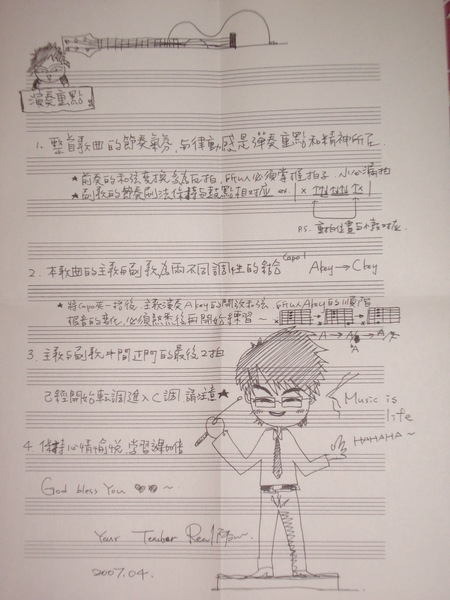 演奏重點
1. 整首歌曲的節奏氣氛,与律動感是彈奏重點和精神所在.
★前奏的和弦變換多為反拍,所以必須掌握拍子 小心漏拍
★副歌的節奏刷法保持与鼓點相對應 ex. | × ↑↓ |
P.S. 重拍位置与小鼓对应.
2. 本歌曲的主歌与副歌為兩不同調性的結合 Capo 1 Akey → Ckey
★將Capo夾一格後 主歌演奏Akey的開放和弦 所以Akey的順階
根音的變化,必須熟悉後再開始練習~
A → A → A
3. 主歌与副歌中間过門的最後2拍
已經開始転調進入C調 請注意★
4. 保持心情愉悅,學習課加倍
Music is life
HAHAHA~
God bless You ~
Your Teacher
2007.04.